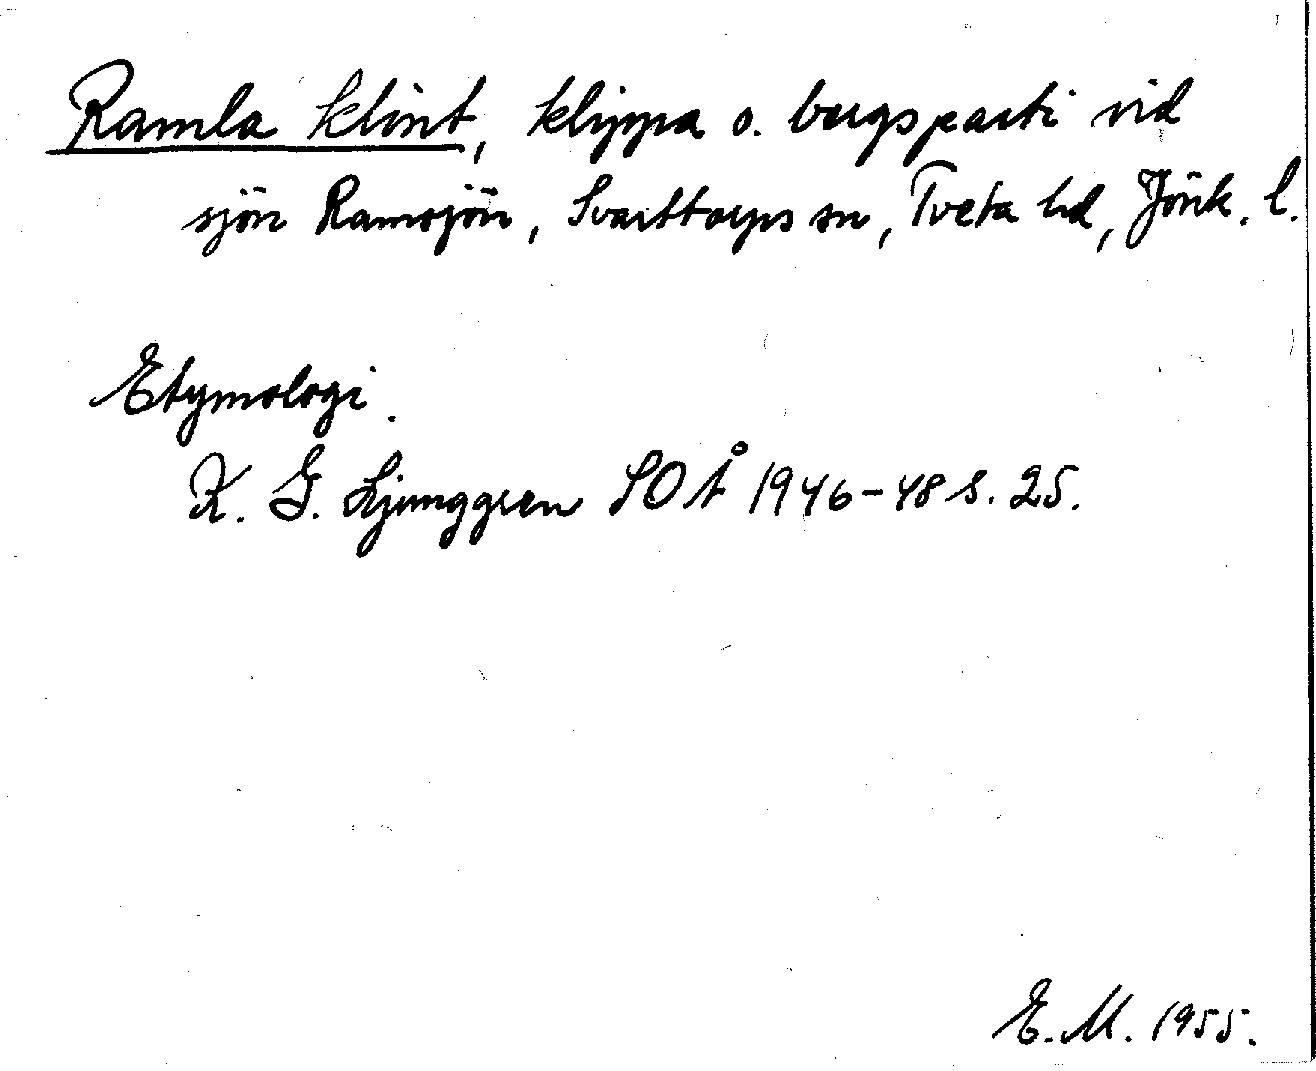 Ramla klint, klippa o. bergsparti vid
sjön Ramsjön, Svarttorps sn, Tveta hd, Jönk. l.
Etymologi.
K. G. Ljunggren SOÅ 1946-48 s. 25.
E. M. 1955.